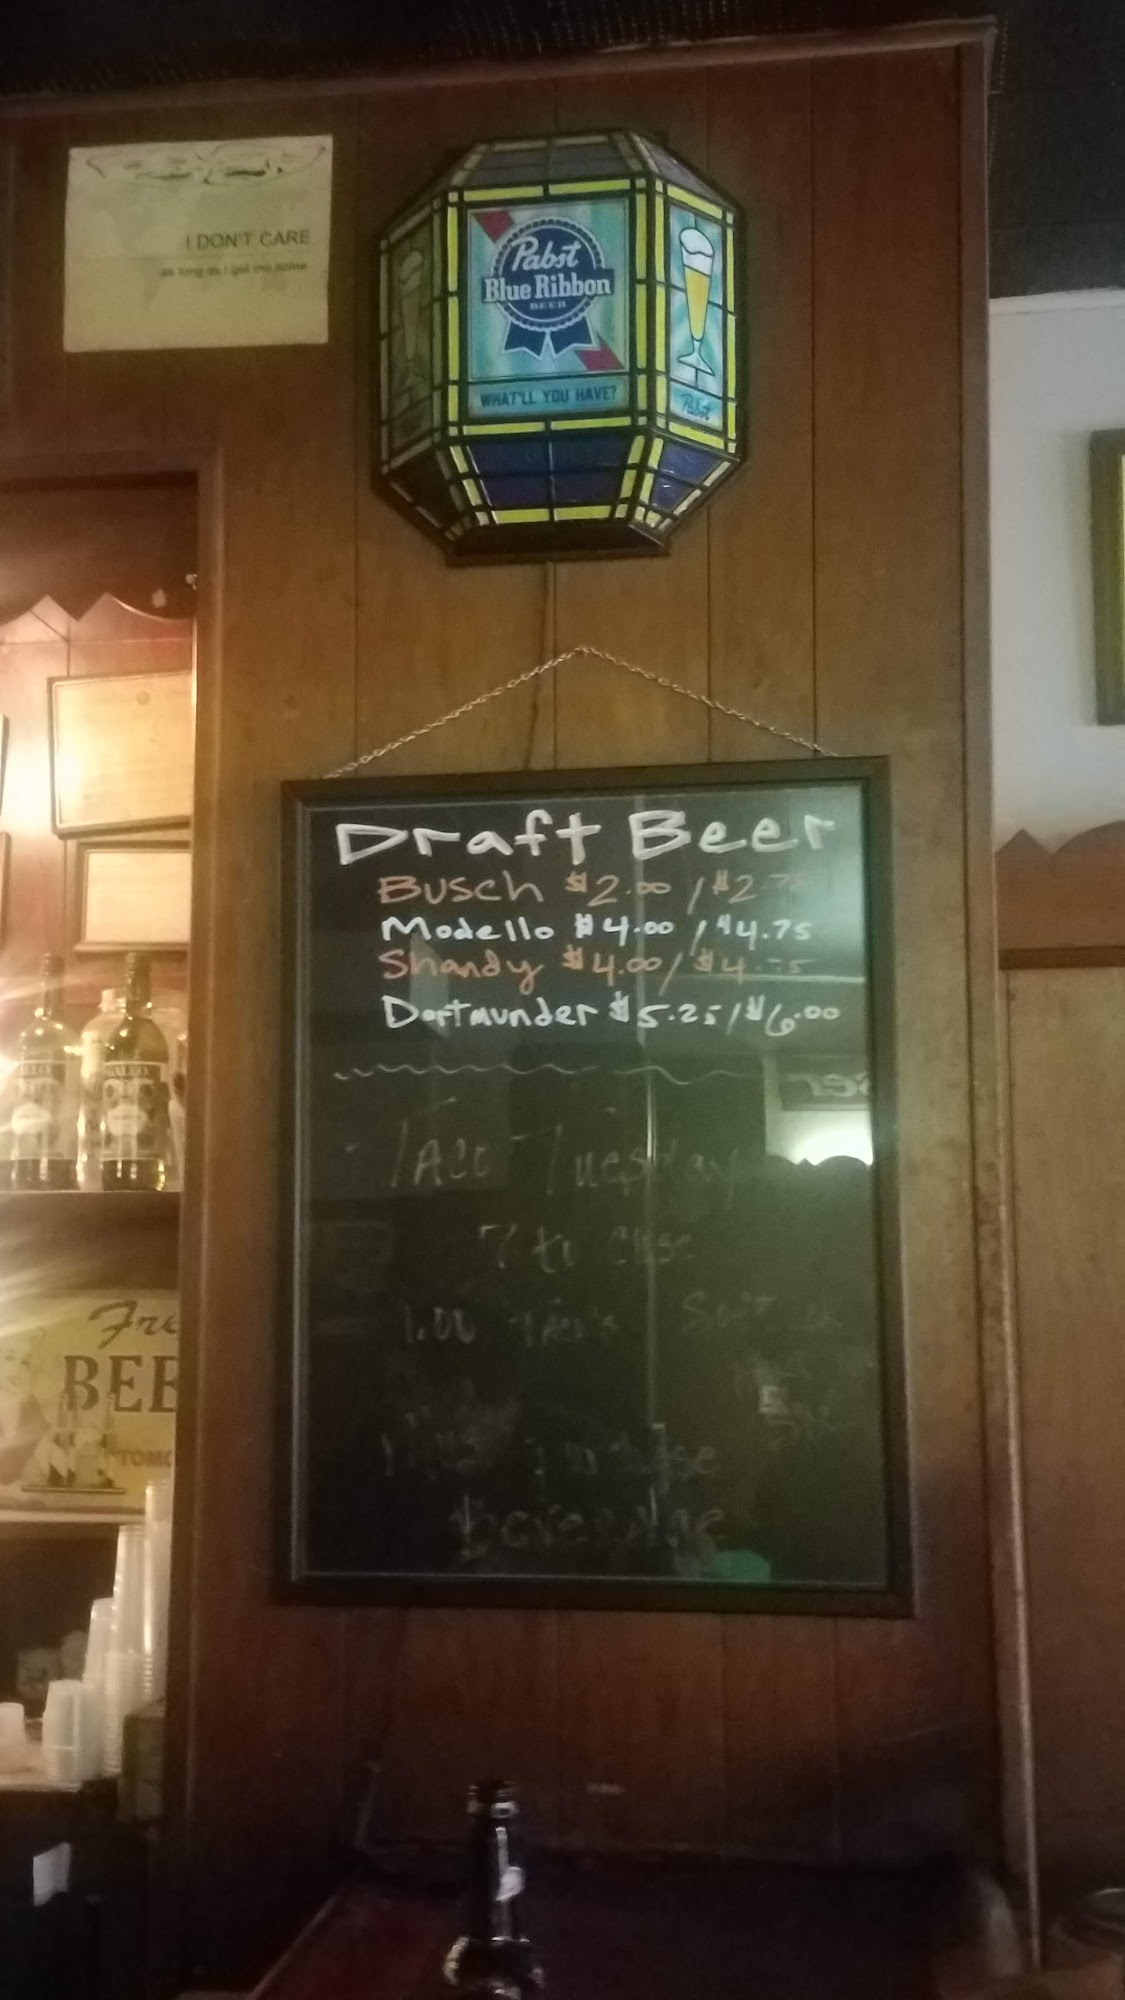 I DON'T CARE
as long as I get my
Pabst
Blue Ribbon
BEER
WHAT'LL YOU HAVE?
Pabst
Draft Beer
Busch $2.00 / $2.75
Modello $4.00 / $4.75
Shandy $4.00 / $4.75
Dortmunder $5.25 / $6.00
Taco Tuesday
7 to close
1.00 Taco's
Must purchase
beverage
GALLO
GALLO
Fre
BEE
TOMO